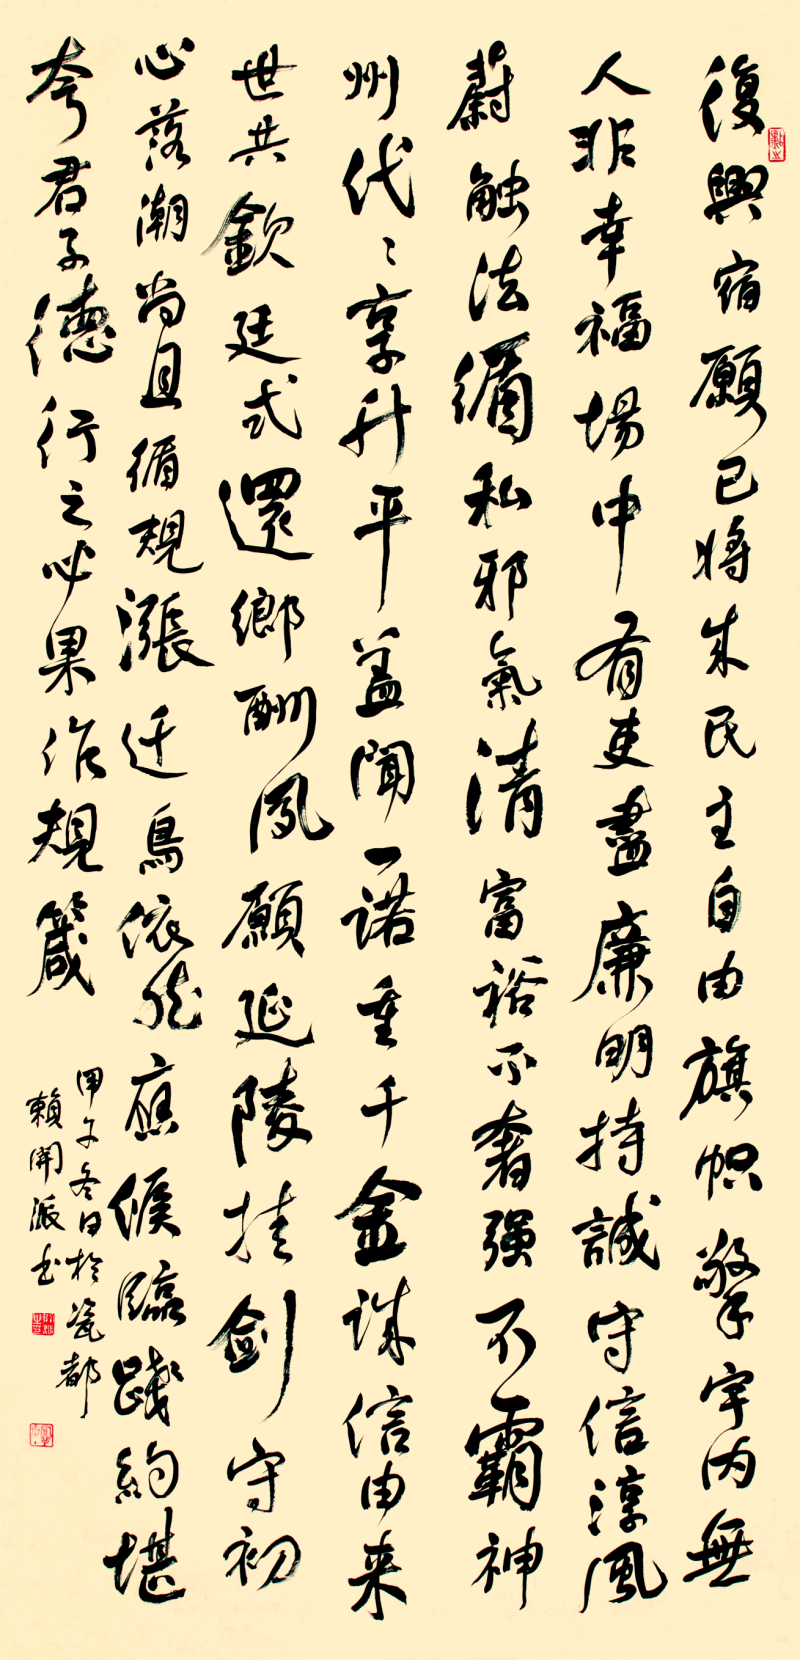 復興宿願已將成民主自由旗幟擎宇内無
人非幸福場中有吏盡廉明持誠守信淳風
蔚觸法循私邪氣清富裕不奢强不霸神
州代々享升平蓋聞一諾重千金誅信由来
世共欽廷式還鄉酬鳳願延陵挂劍守初
心落潮尚且循規漲迁鳥依然應候臨踐約堪
夸君子德行之必果作規箴
甲午冬日於瓷都
賴開派書